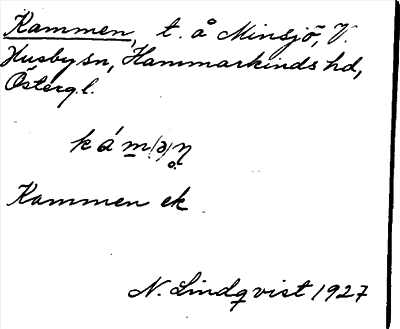 Kammen, t. å Minsjö, V.
Husby sn, Hammarkinds hd,
Österg.l.
k á m(ə)n̥
Kammen ek
N. Lindqvist 1927